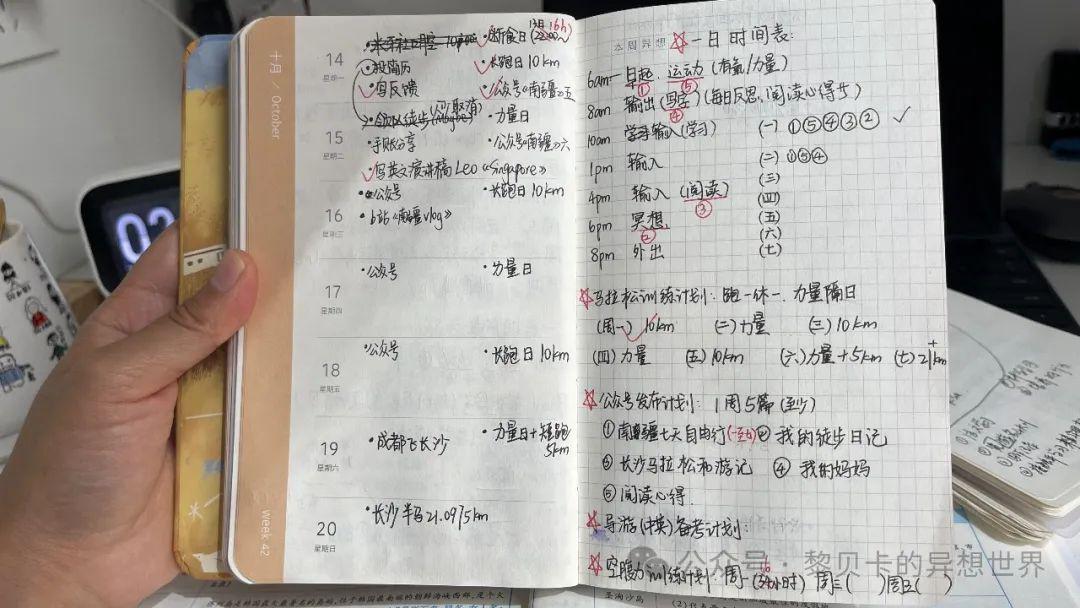 十月 / October
14
星期一
·投简历
·写反馈
·断食日
16h
·长跑日 10km
·公众号《南疆》五
15
星期二
·手账分享
·写英文演讲稿 Leo《Singapore》
·力量日
·公众号《南疆》六
16
星期三
·公众号
·b站《南疆vlog》
·长跑日 10km
17
星期四
·公众号
·力量日
18
星期五
·公众号
·长跑日 10km
19
星期六
·成都飞长沙
·力量日+短跑
5km
20
星期日
·长沙半马21.0975km
week 42
本周异想
☆一日时间表:
6am 早起、运动(有氧/力量)
① ⑤
8am 输出(写字)(每日反思、阅读心得等)
④
10am 学习输入(学习) (一) ①⑤④③② ✓
1pm 输入 (二) ①⑤④
(三)
4pm 输入(阅读) (四)
③
(五)
6pm 冥想 (六)
②
8pm 外出 (七)
☆马拉松训练计划: 跑一休一、力量隔日
(周一) 10km (二)力量 (三)10km
(四)力量 (五)10km (六)力量+5km (七)21km+
☆公众号发布计划: 1周5篇(至少)
①南疆七天自由行(一至七) ②我的徒步日记
③长沙马拉松和游记 ④我的妈妈
⑤阅读心得.
☆导游(中英)备考计划:
☆空腹力训练计划: 周一(16小时) 周三( )周五( )
公众号·黎贝卡的异想世界